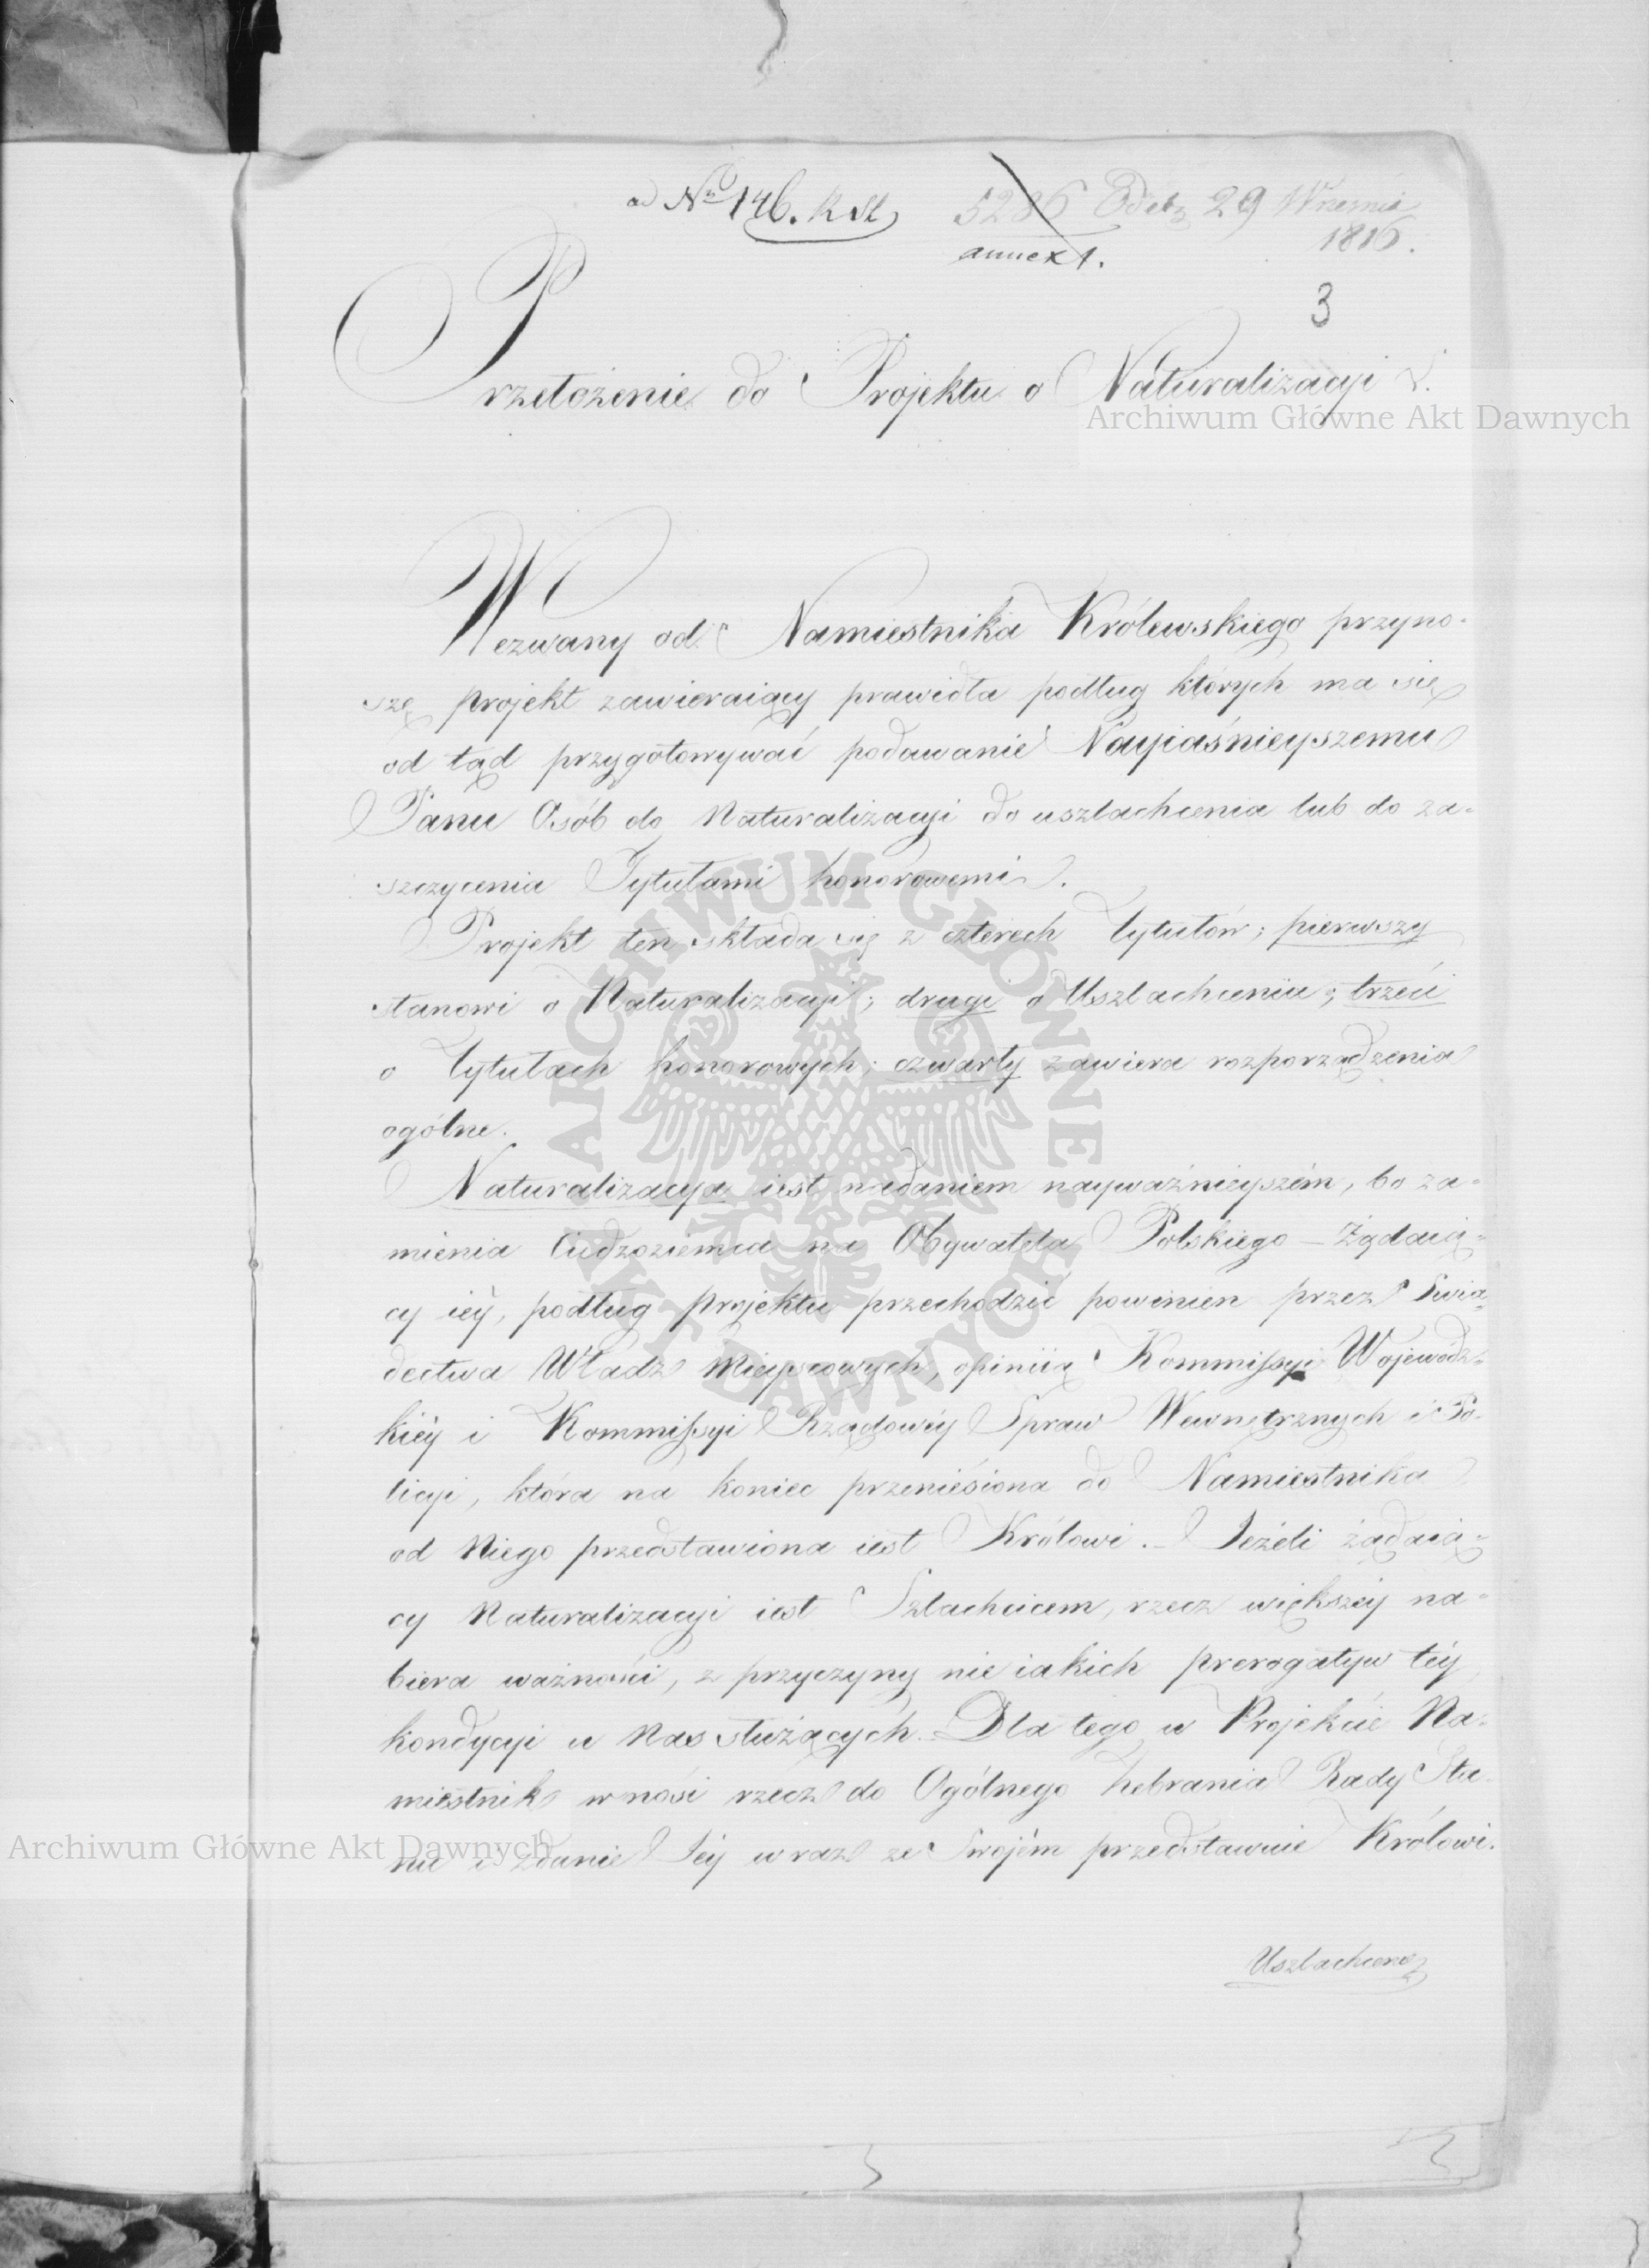 ad No 146. R St 5286 Odeb 29 Września
1816.
annex 1.
3
Przełożenie do Projektu o Naturalizacyi
Archiwum Główne Akt Dawnych
Wezwany od Namiestnika Królewskiego przyno-
szę projekt zawieraiący prawidła podług których ma się
od tąd przygotowywać podawanie Nayiaśnieyszemu
Panu Osób do Naturalizacyi do uszlachcenia lub do za-
szczycenia Tytułami honorowemi.
Projekt ten składa się z czterech Tytułów; pierwszy
stanowi o Naturalizacyi; drugi o Uszlachceniu; trzeci
o Tytułach honorowych; czwarty zawiera rozporządzenia
ogólne.
Naturalizacya iest nadaniem nayważnieyszém, bo za-
mienia Cudzoziemca na Obywatela Polskiego – Żądaią-
cy iéy, podług projektu przechodzić powinien przez Świa-
dectwa Władz Mieyscowych, opiniią Kommissyi Wojewódz-
kiéy i Kommissyi Rządowéy Spraw Wewnętrznych i Po-
licyi, która na koniec przeniesiona do Namiestnika
od Niego przedstawiona iest Królowi. – Jeżeli żądaią-
cy Naturalizacyi iest Szlachcicem, rzecz większéy na-
biera ważności, z przyczyny nie iakich prerogatyw téy
kondycyi u Nas służących. Dla tego w Projekcie Na-
miestnik wnosi rzecz do Ogólnego Zebrania Rady Sta-
nu i zdanie Jéy wraz ze Swojém przedstawuie Królowi.
Archiwum Główne Akt Dawnych
Uszlachcenie
ARCHIWUM GŁÓWNE AKT DAWNYCH